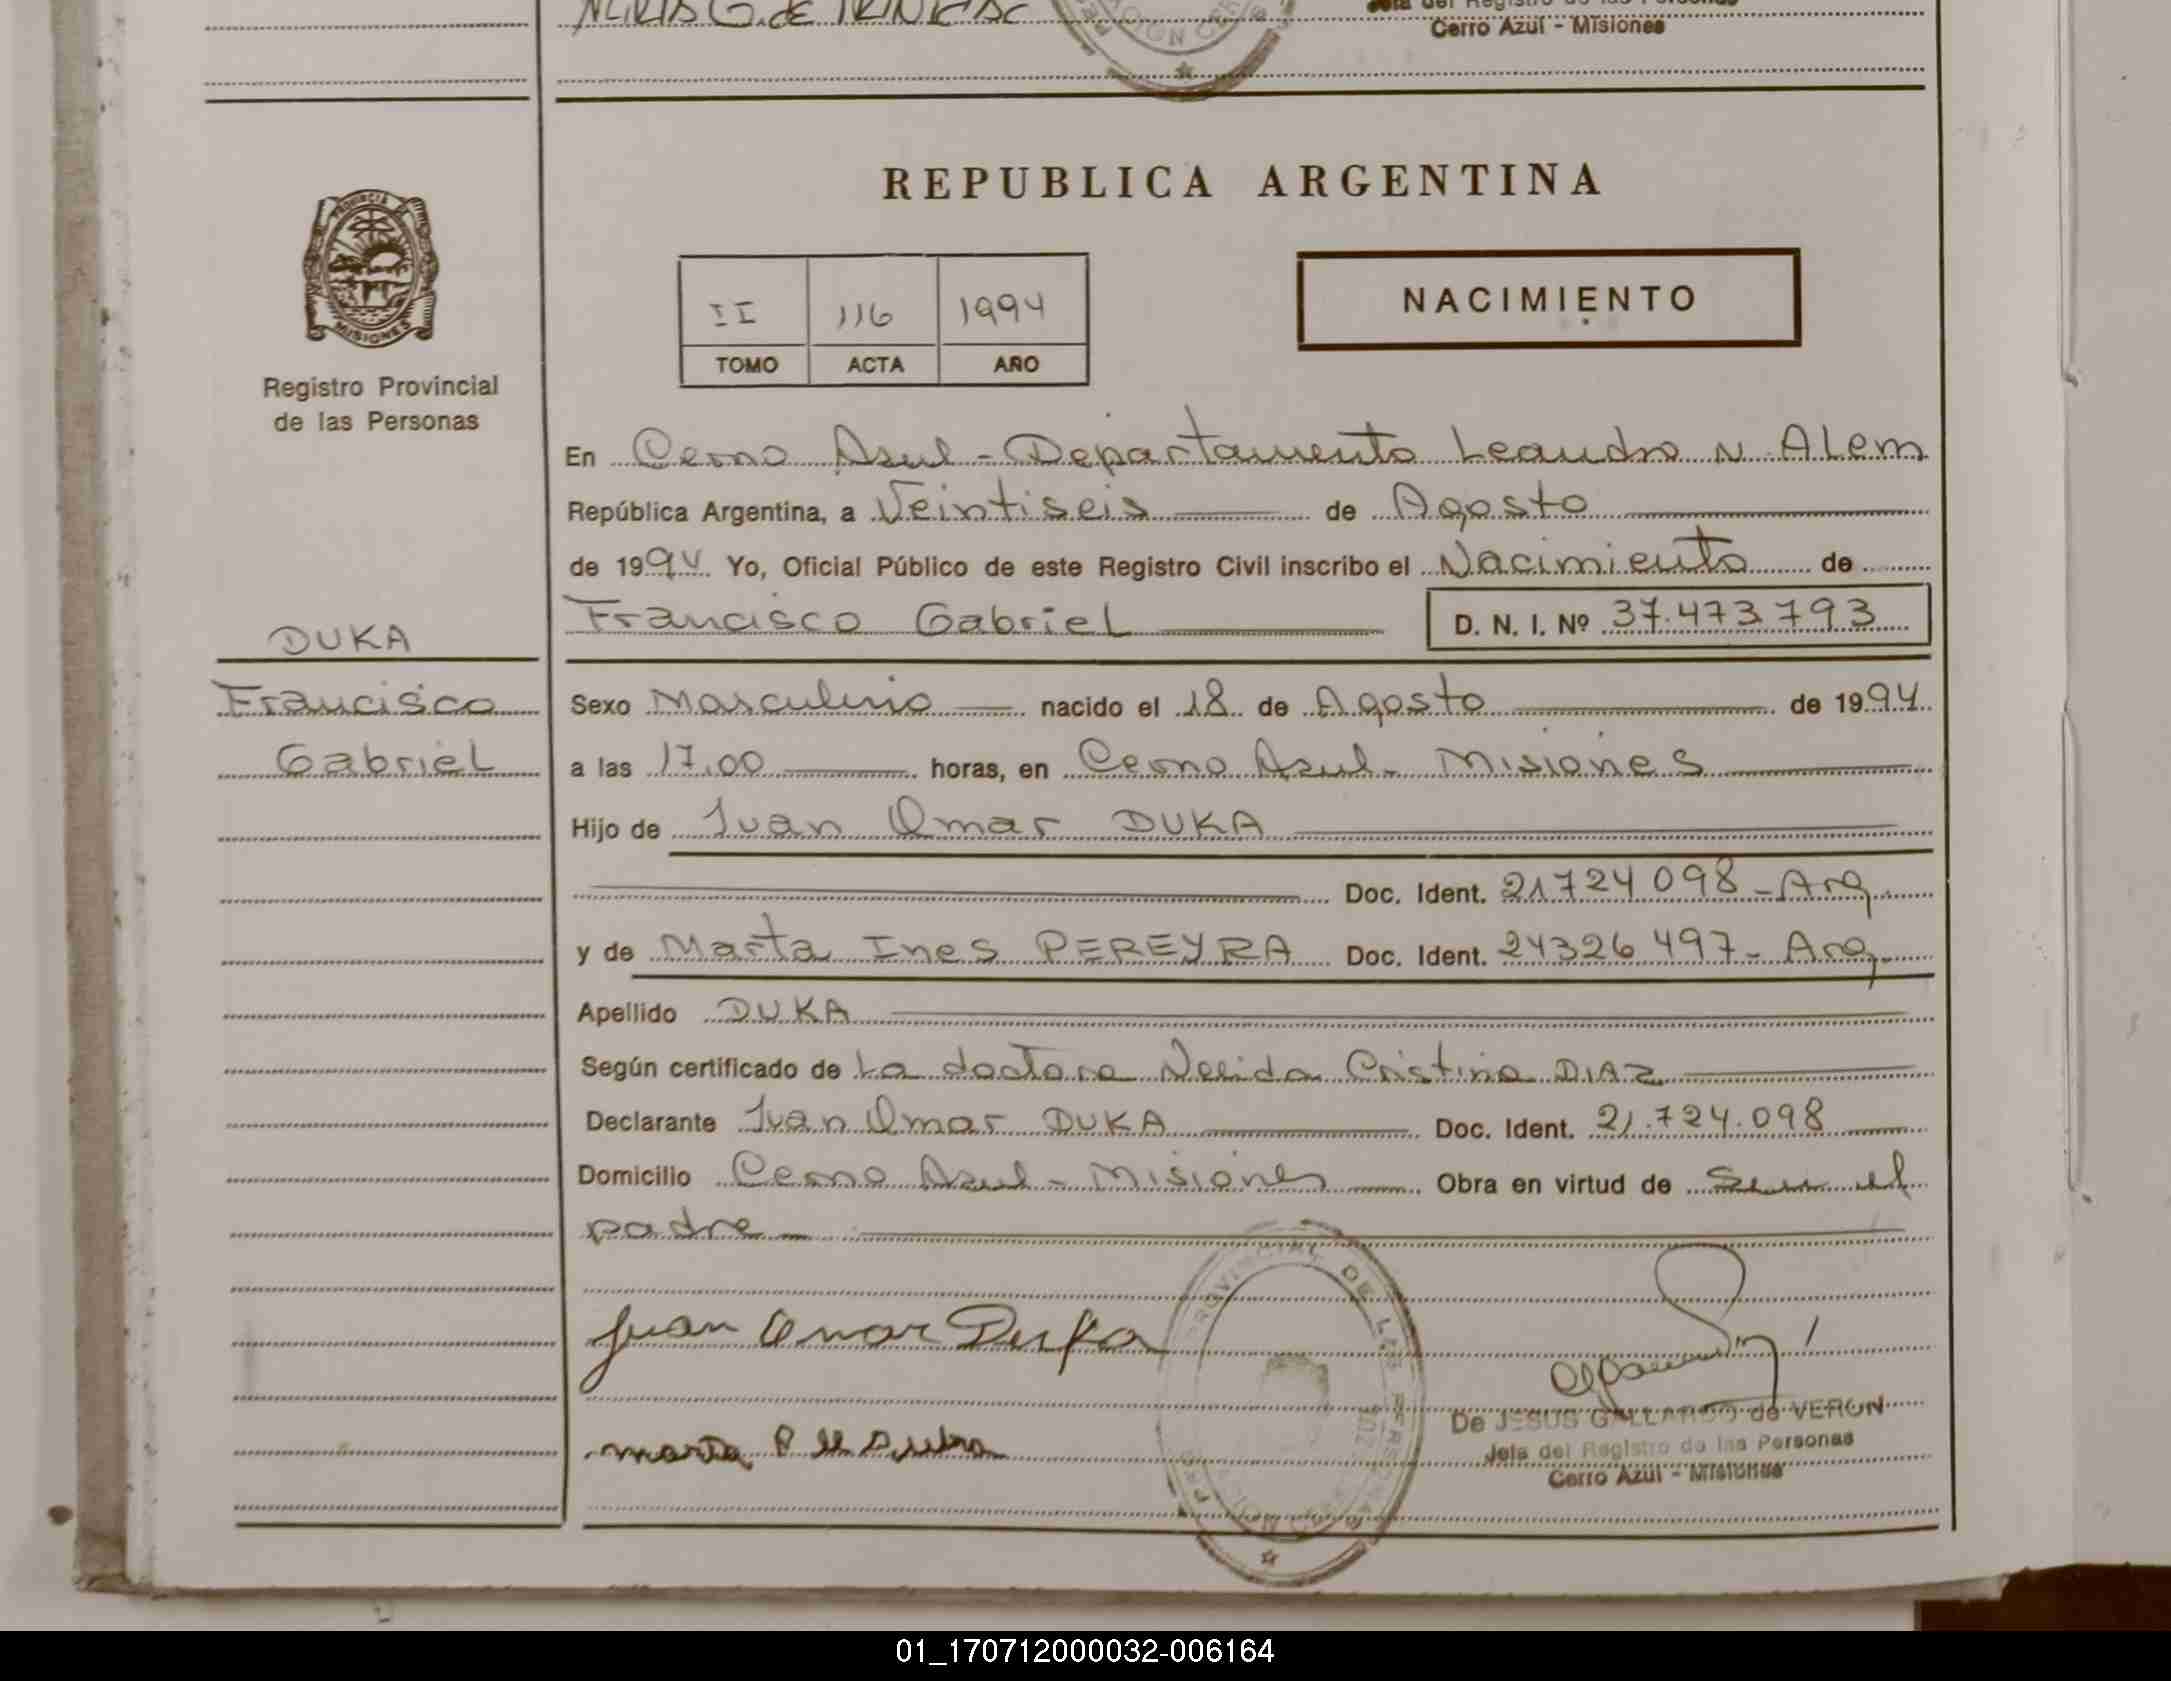 Jefa del Registro de las Personas
Cerro Azul - Misiones
REPUBLICA ARGENTINA
PROVINCIA DE
MISIONES
Registro Provincial
de las Personas
II 116 1994
TOMO ACTA AÑO
NACIMIENTO
En Cerro Azul - Departamento Leandro N. ALem
República Argentina, a Veintiseis de Agosto
de 1994 Yo, Oficial Público de este Registro Civil inscribo el Nacimiento de
Francisco Gabriel D. N. I. Nº 37.473.793
DUKA
Francisco
Gabriel
Sexo Masculino nacido el 18 de Agosto de 1994
a las 17,00 horas, en Cerro Azul - Misiones
Hijo de Juan Omar DUKA
Doc. Ident. 21724098 - Arg.
y de Marta Ines PEREYRA Doc. Ident. 24326497 - Arg.
Apellido DUKA
Según certificado de La doctora Nelida Cristina DIAZ
Declarante Juan Omar DUKA Doc. Ident. 21.724.098
Domicilio Cerro Azul - Misiones Obra en virtud de Ser el
padre
Juan Omar Duka
PROVINCIAL DE LAS PERSONAS
Marta P de Duka
De JESUS GALLARDO de VERON
Jefa del Registro de las Personas
Cerro Azul - Misiones
01_170712000032-006164